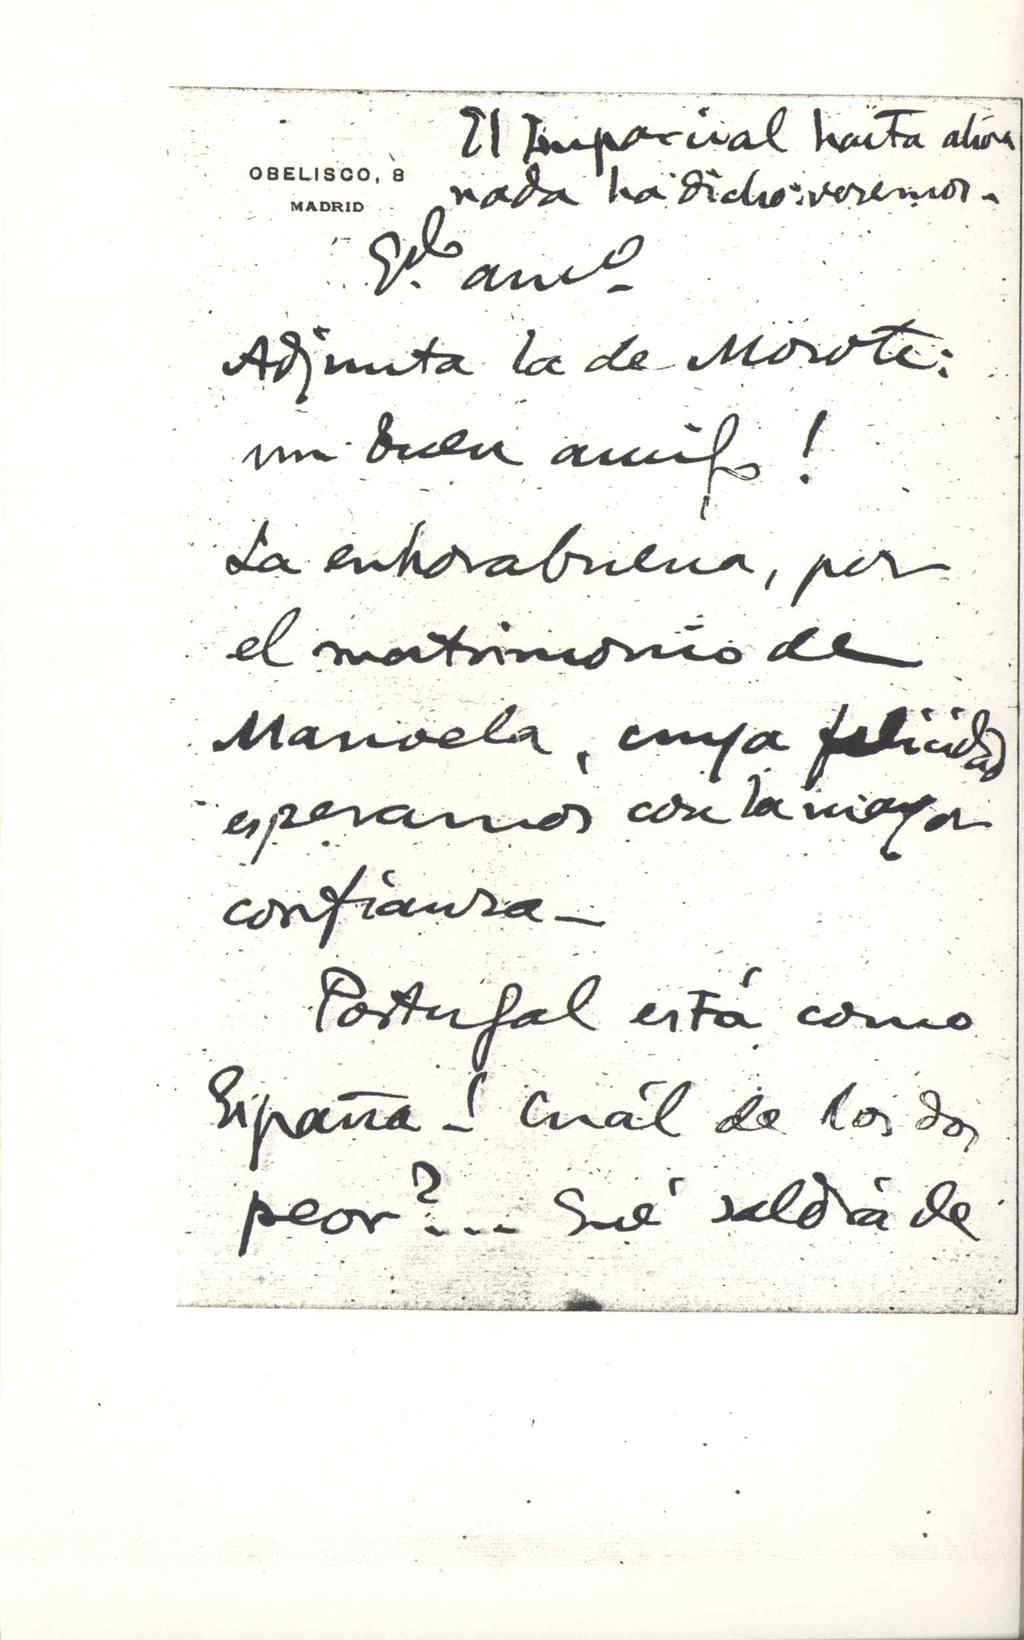 El Imparcial hasta ahora
nada ha dicho: veremos.-
OBELISCO, 8
MADRID
Qdo. amo.
Adjunta la de Morote:
un buen amigo!
La enhorabuena, por
el matrimonio de
Manoela, cuya felicidad
esperamos con la mayor
confianza-
Portugal está como
España-! Cuál de los dos
peor?... Qué saldrá de